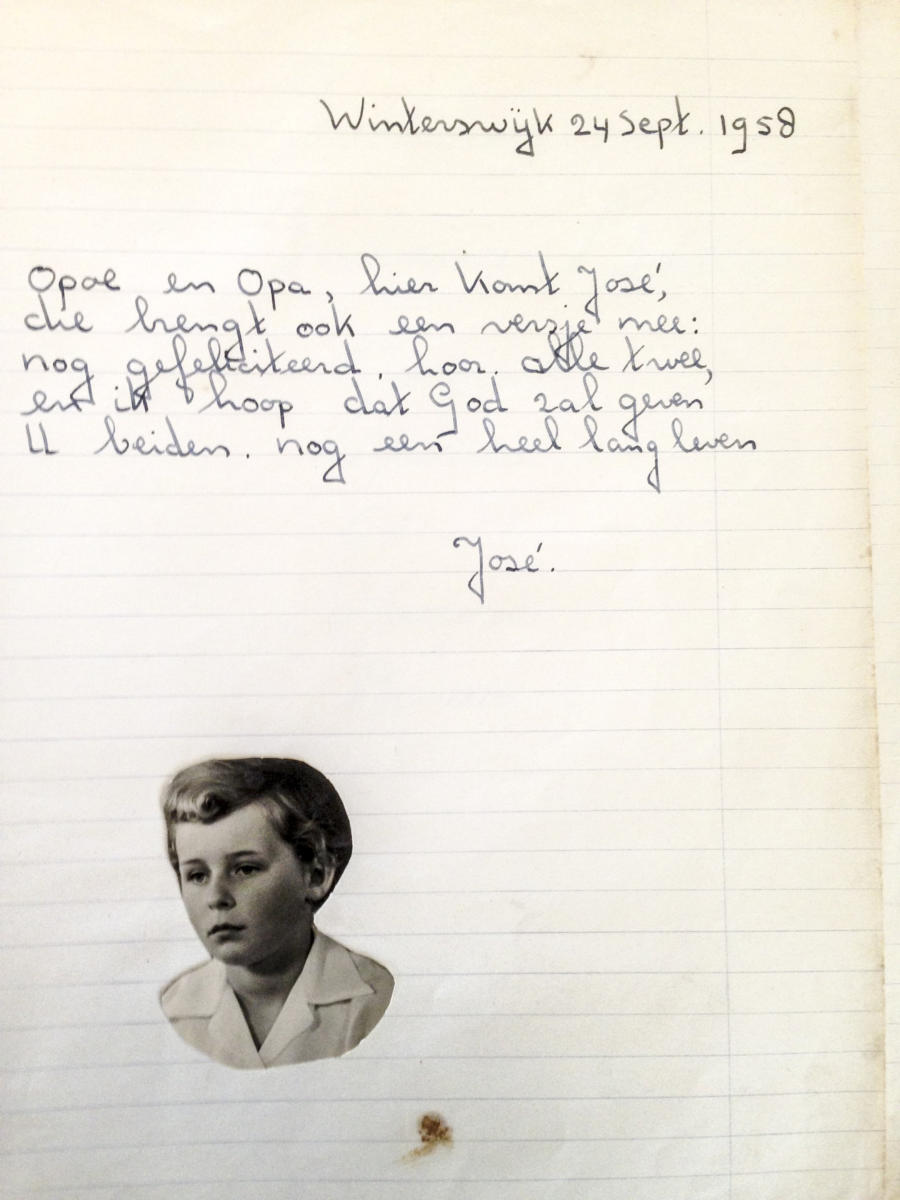 Winterswijk 24 Sept. 1958
Opoe en Opa, hier komt José,
die brengt ook een versje mee:
nog gefeliciteerd, hoor. alle twee,
en ik hoop dat God zal geven
U beiden. nog een heel lang leven
José.